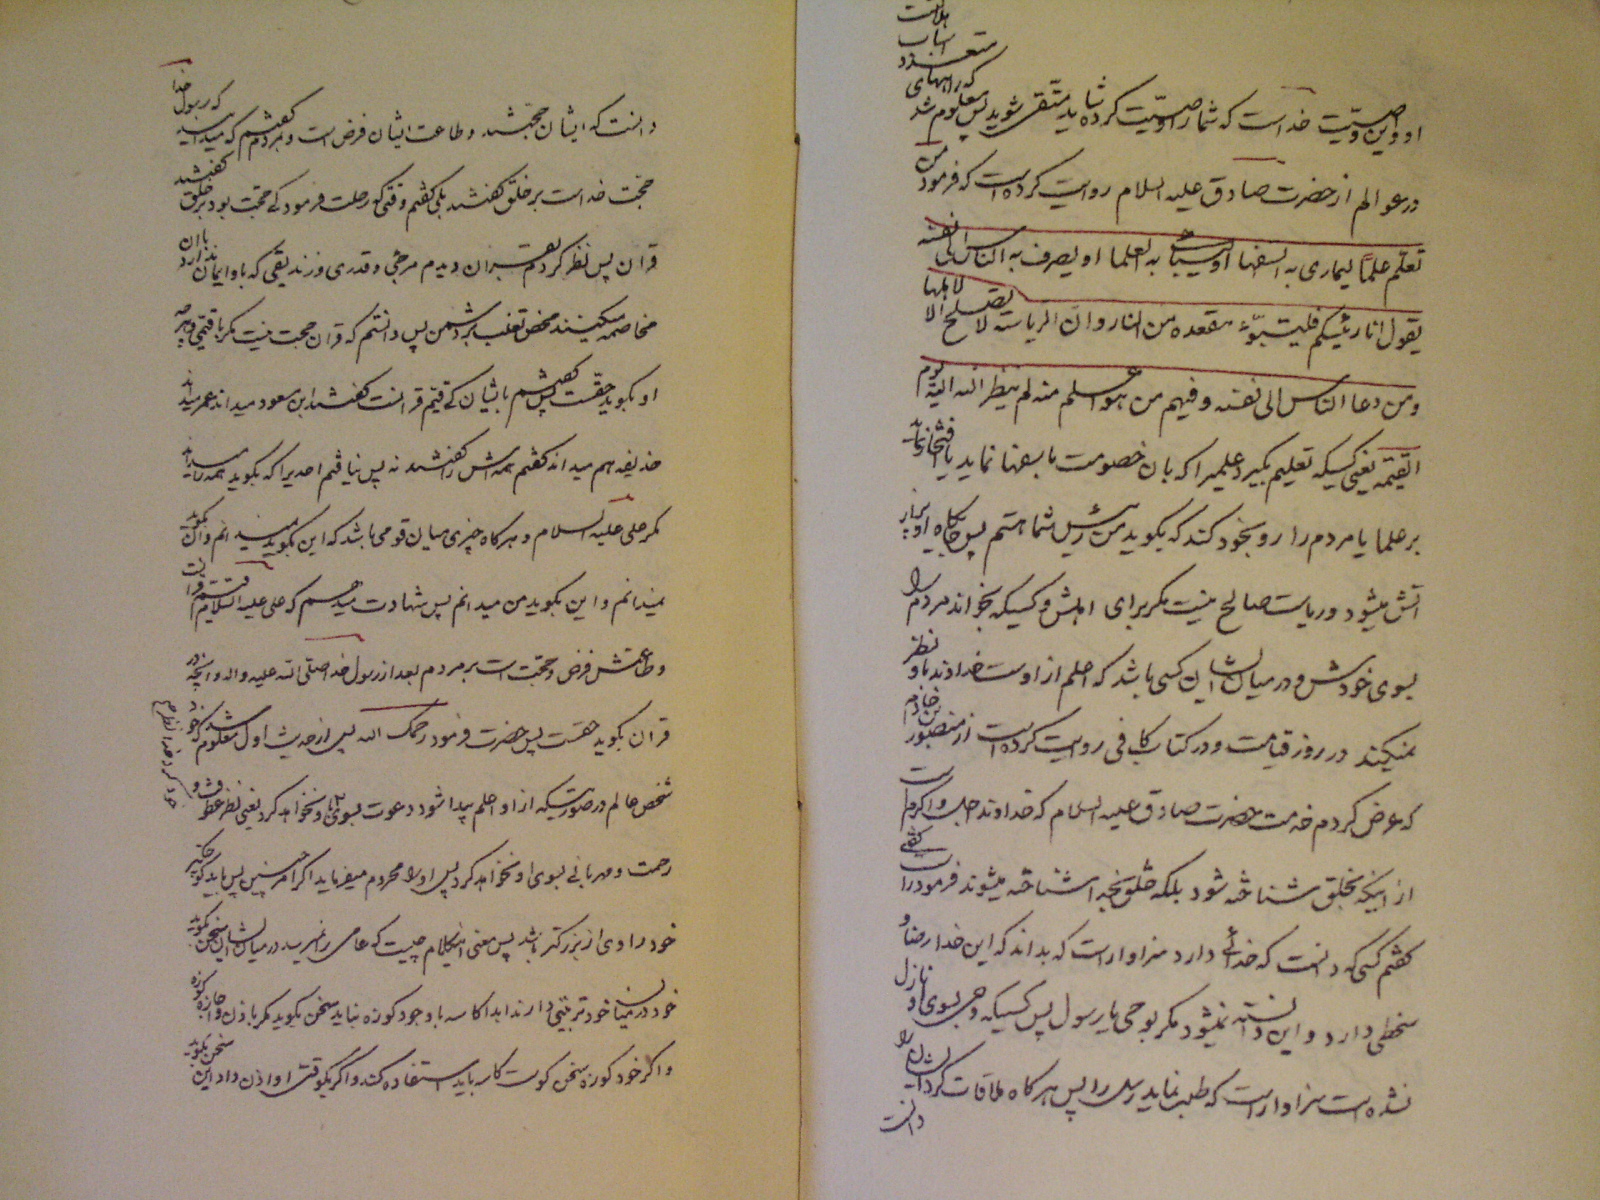 او و این وصیت خداست که شما را وصیت کرده شاید متقی شوید پس معلوم شد
که راههای
متعدد
اسباب
هلاکت
در عوالم از حضرت صادق علیه السلام روایت کرده است که فرمود من
تعلم علما لیماری به السفها او یباهی به العلما او یصرف به الناس الی نفسه
یقول انا رئیسکم فلیتبوء مقعده من النار و ان الریاسة لا تصلح الا لاهلها
و من دعا الناس الی نفسه و فیهم من هو اعلم منه لم ینظر الله الیه یوم
القیمة یعنی کسیکه تعلیم بگیرد علمیرا که بان خصومت با سفها نماید یا افتخار نماید
بر علما یا مردم را رو بخود کند که بگوید من رئیس شما هستم پس جایگاه او پر از
اتش میشود و ریاست صالح نیست مگر برای اهلش و کسیکه بخواند مردم را
بسوی خودش و در میان ایشان کسی باشد که اعلم از اوست خداوند باو نظر
نمیکند در روز قیامت و در کتاب کافی روایت کرده است از منصور بن حازم
که عرض کردم خدمت حضرت صادق علیه السلام که خداوند اجل و اکرم است
از اینکه بخلق شناخته شود بلکه خلق بخدا شناخته میشوند فرمود راست گفتی
گفتم کسی که دانست که خدائی دارد سزاوار است که بداند که این خدا رضا و
سخطی دارد و این دانسته نمیشود مگر بوحی یا رسول پس کسیکه وحی بسوی او نازل
نشده است سزاوار است که طلب نماید رسل را پس هرگاه ملاقات کرد ایشان را
دانست
دانست که ایشان حجتند و طاعت ایشان فرض است و بمردم گفتم که میدانید که رسول خدا
حجت خداست بر خلق گفتند بلی گفتم وقتی که رحلت فرمود کی حجت بود بر خلق گفتند
قران پس نظر کردم بقران دیدم مرجئی و قدری و زندیقی که باو ایمان ندارد با ان
مخاصمه میکنند محض تغلب بر دشمن پس دانستم که قران حجت نیست مگر با قیمی و هرچه
او بگوید حقست پس گفتم بایشان کی قیم قرانست گفتند ابن مسعود میداند عمر میداند
حذیفه هم میداند گفتم همه اش را گفتند نه پس نیافتم احدیرا که بگوید همه را میداند
مگر علی علیه السلام و هرگاه چیزی میان قومی باشد که این بگوید نمیدانم و ان بگوید
نمیدانم و این بگوید من میدانم پس شهادت میدهم که علی علیه السلام قیم قران است
و طاعتش فرض و حجت است بر مردم بعد از رسول خدا صلی الله علیه و اله و انچه در
قران بگوید حقست پس حضرت فرمود رحمک الله پس از حدیث اول معلوم شد که
شخص عالم در صورتیکه از او اعلم پیدا شود دعوت بسوی او نخواهد کرد یعنی نظر عطوفت و
رحمت و مهربانی بسوی او نخواهد کرد پس او را محروم میفرماید اگر چنین پس باید کوچکتر
خود را وی از بزرگتر پس معنی اینکلام چیست که عامی را نمیرسد در میان ایشان سخن بگوید
خود در میان خود ترتیبی دارند ابدا کاسه با وجود کوزه نباید سخن بگوید مگر باذن و اجازه کوزه
و اگر خود کوزه سخن گوست کاسه باید استفاده کند و اگر یکوقتی او اذن داد این سخن بگوید